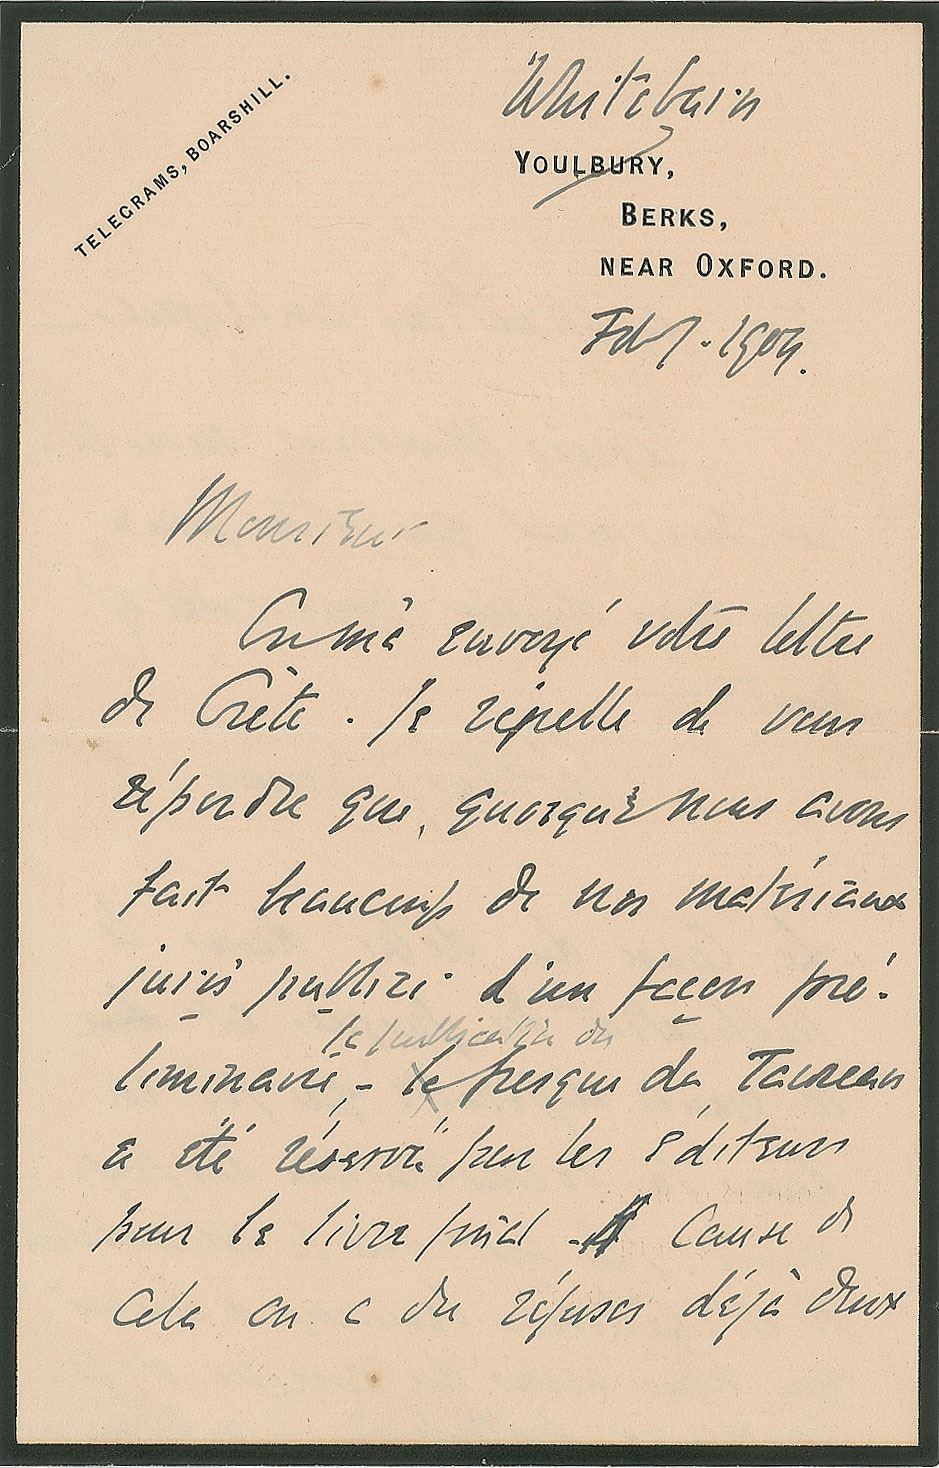 TELEGRAMS, BOARSHILL.
Whitebarn
YOULBURY,
BERKS,
NEAR OXFORD.
Feb 7. 1909.
Monsieur
On m'a envoyé votre lettre
de Crète. Je regrette de vous
répondre que, quoique nous avons
fait beaucoup de nos matériaux
juris publici d'un façon pré-
la publication du
liminaire, - le fresque du Taureau
a été réservé par les éditeurs
pour le livre final - A cause de
cela on a du réfuser déjà deux